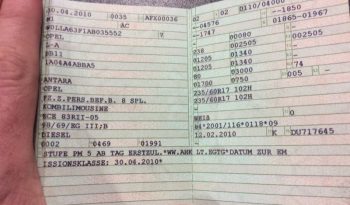 30.04.2010 0035 AFX00036
M1 AC
W0LLA63F1AB035552 7
OPEL
L-A
BB11
1A04A4ABBA5
ANTARA
OPEL
FZ.Z.PERS.BEF.B. 8 SPL.
KOMBILIMOUSINE
ECE 83RII-05
98/69/EG III;B
DIESEL
0002 0469 01991
STUFE PM 5 AB TAG ERSTZUL.*WW.AHK LT.EGTG*DATUM ZUR EM
ISSIONSKLASSE: 30.04.2010*
02 02 D110/04000
04576 --1850
01865-01967
1747 00080
238 002505 002505
01205 01340
01205 01340
01700 0750 75
235/60R17 102H
235/60R17 102H
WEIß
e4*2001/116*0118*09
12.02.2010 K DU717645